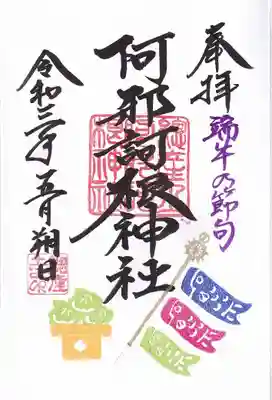 奉拝
端午の節句
阿那訶根神社
令和三年五月朔日